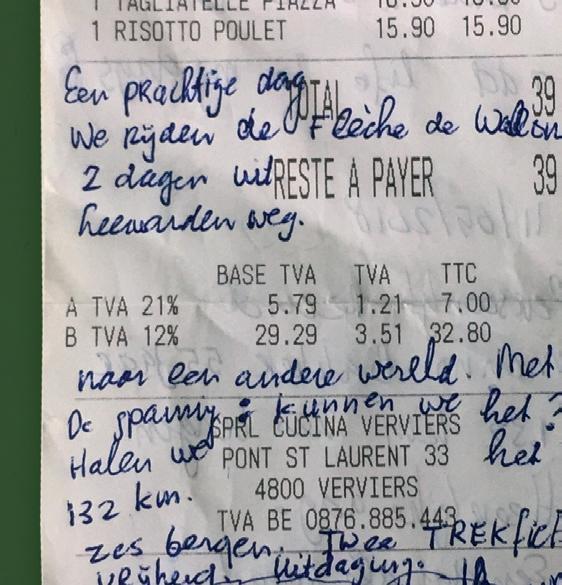 1 TAGLIATELLE PIAZZA
1 RISOTTO POULET 15.90 15.90
Een prachtige dag
TOTAL 39
We rijden de Flèche de Wallon
2 dagen uit
RESTE A PAYER 39
Leewarden weg.
BASE TVA TVA TTC
A TVA 21% 5.79 1.21 7.00
B TVA 12% 29.29 3.51 32.80
naar een andere wereld. Met
De spanning: kunnen we het?
SPRL CUCINA VERVIERS
Halen we het
PONT ST LAURENT 33
132 km.
4800 VERVIERS
TVA BE 0876.885.443
zes bergen. Twee TREKfiet
vrijheid uitdaging.